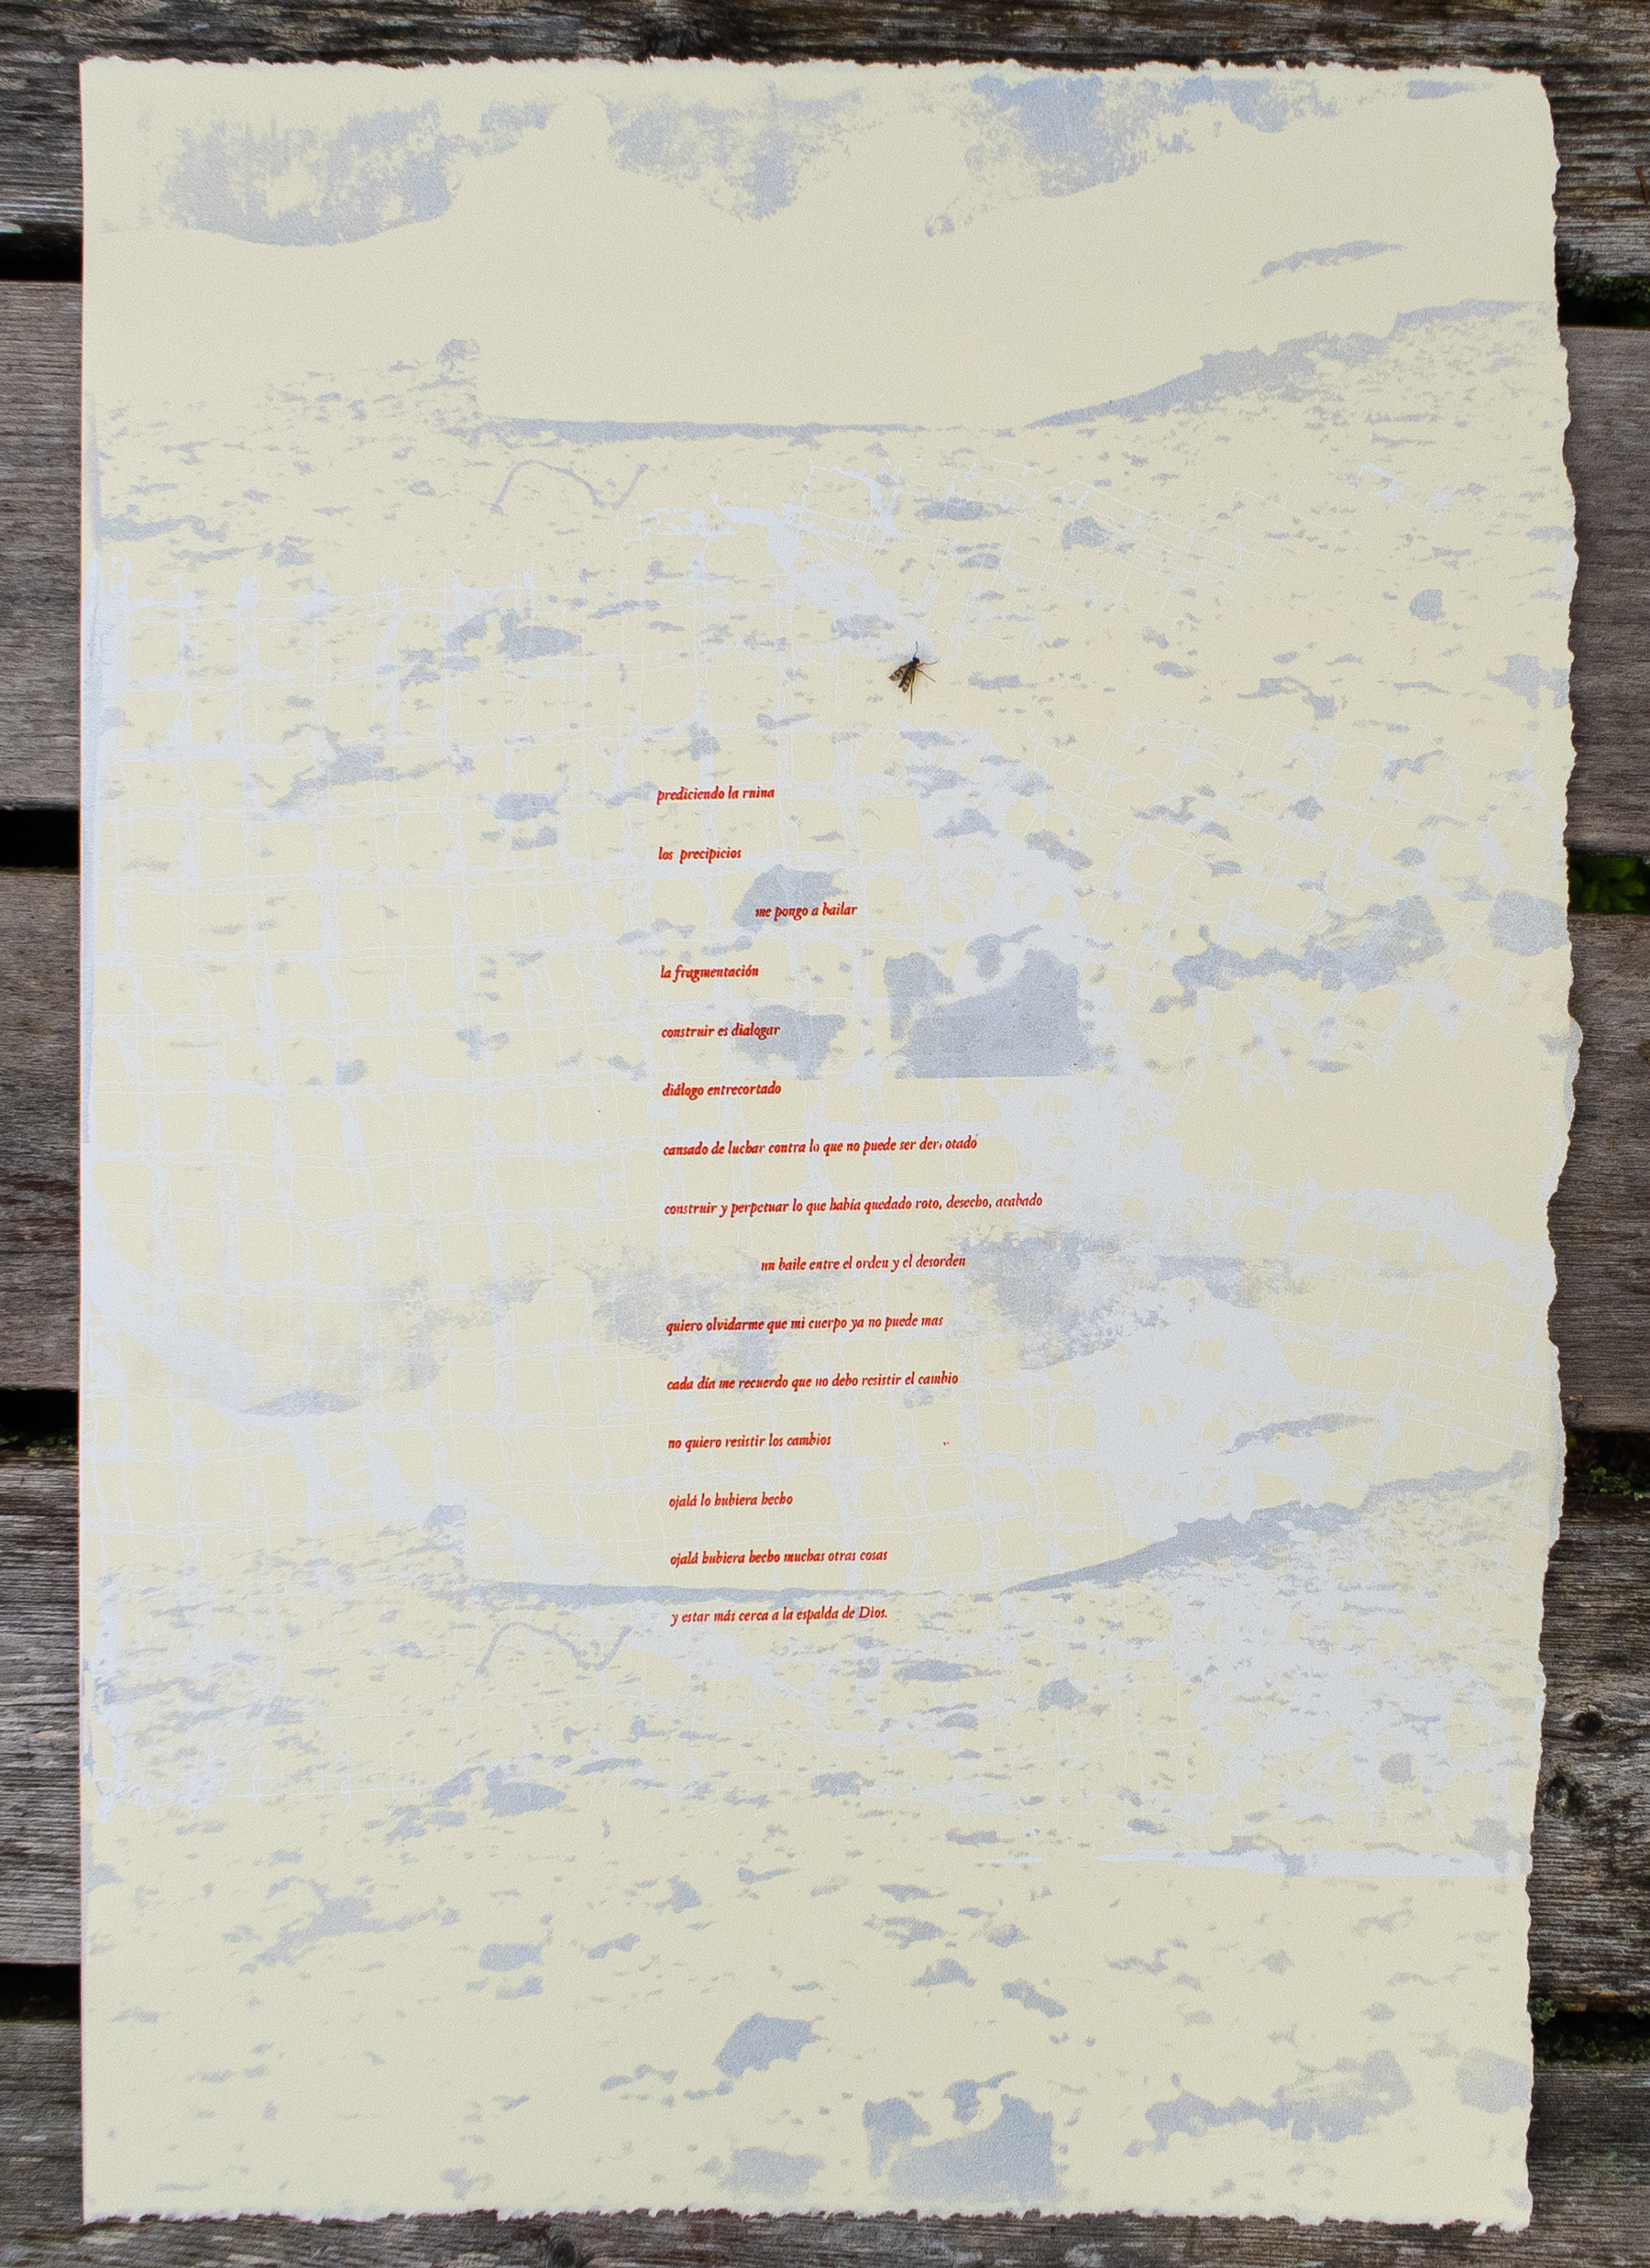 prediciendo la ruina
los precipicios
me pongo a bailar
la fragmentación
construir es dialogar
diálogo entrecortado
cansado de luchar contra lo que no puede ser derrotado
construir y perpetuar lo que había quedado roto, desecho, acabado
un baile entre el orden y el desorden
quiero olvidarme que mi cuerpo ya no puede mas
cada día me recuerdo que no debo resistir el cambio
no quiero resistir los cambios
ojalá lo hubiera hecho
ojalá hubiera hecho muchas otras cosas
y estar más cerca a la espalda de Dios.